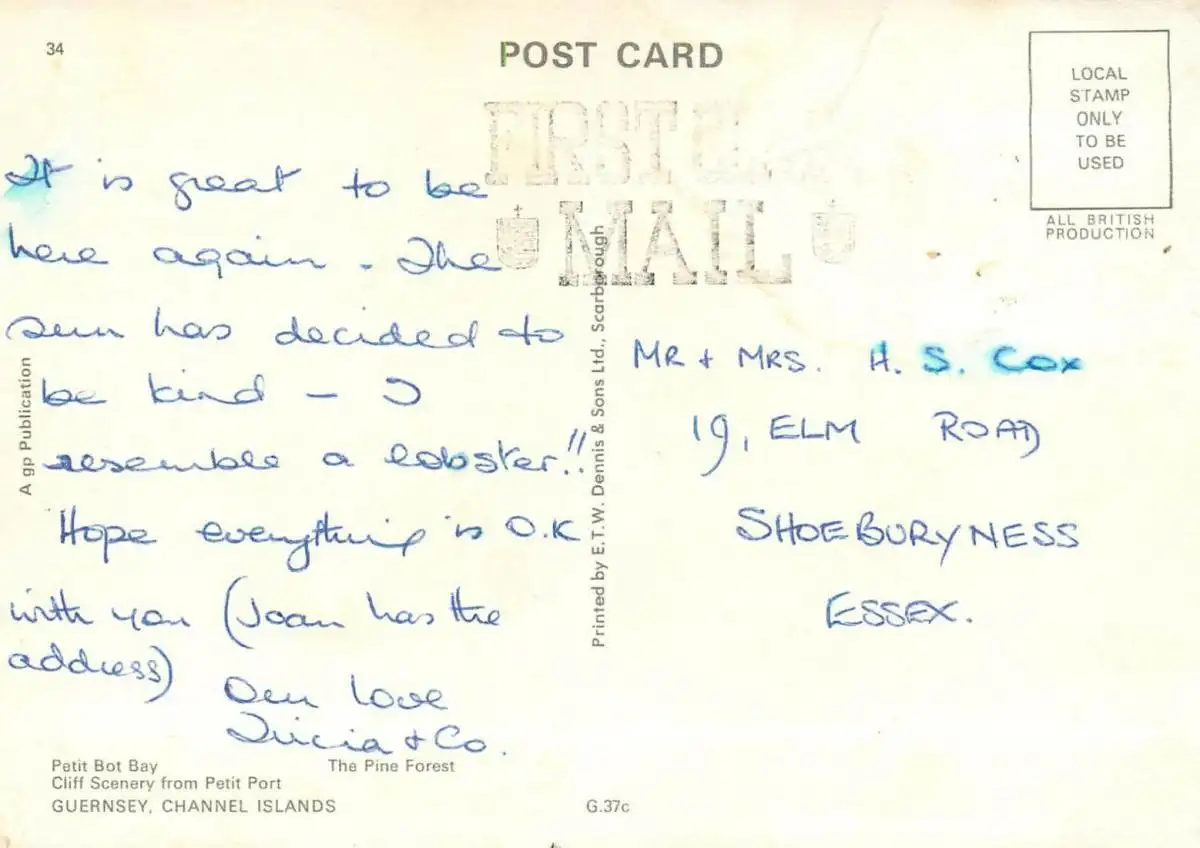 34
POST CARD
LOCAL
STAMP
ONLY
TO BE
USED
ALL BRITISH
PRODUCTION
FIRST
MAIL
It is great to be
here again. The
sun has decided to
be kind - I
resemble a lobster!!
Hope everything is O.K
with you (Joan has the
address)
Our love
Tricia + Co.
A gp Publication
Printed by E.T.W. Dennis & Sons Ltd., Scarborough
MR + MRS. H. S. COX
19, ELM ROAD
SHOEBURYNESS
ESSEX.
Petit Bot Bay The Pine Forest
Cliff Scenery from Petit Port
GUERNSEY, CHANNEL ISLANDS
G.37c